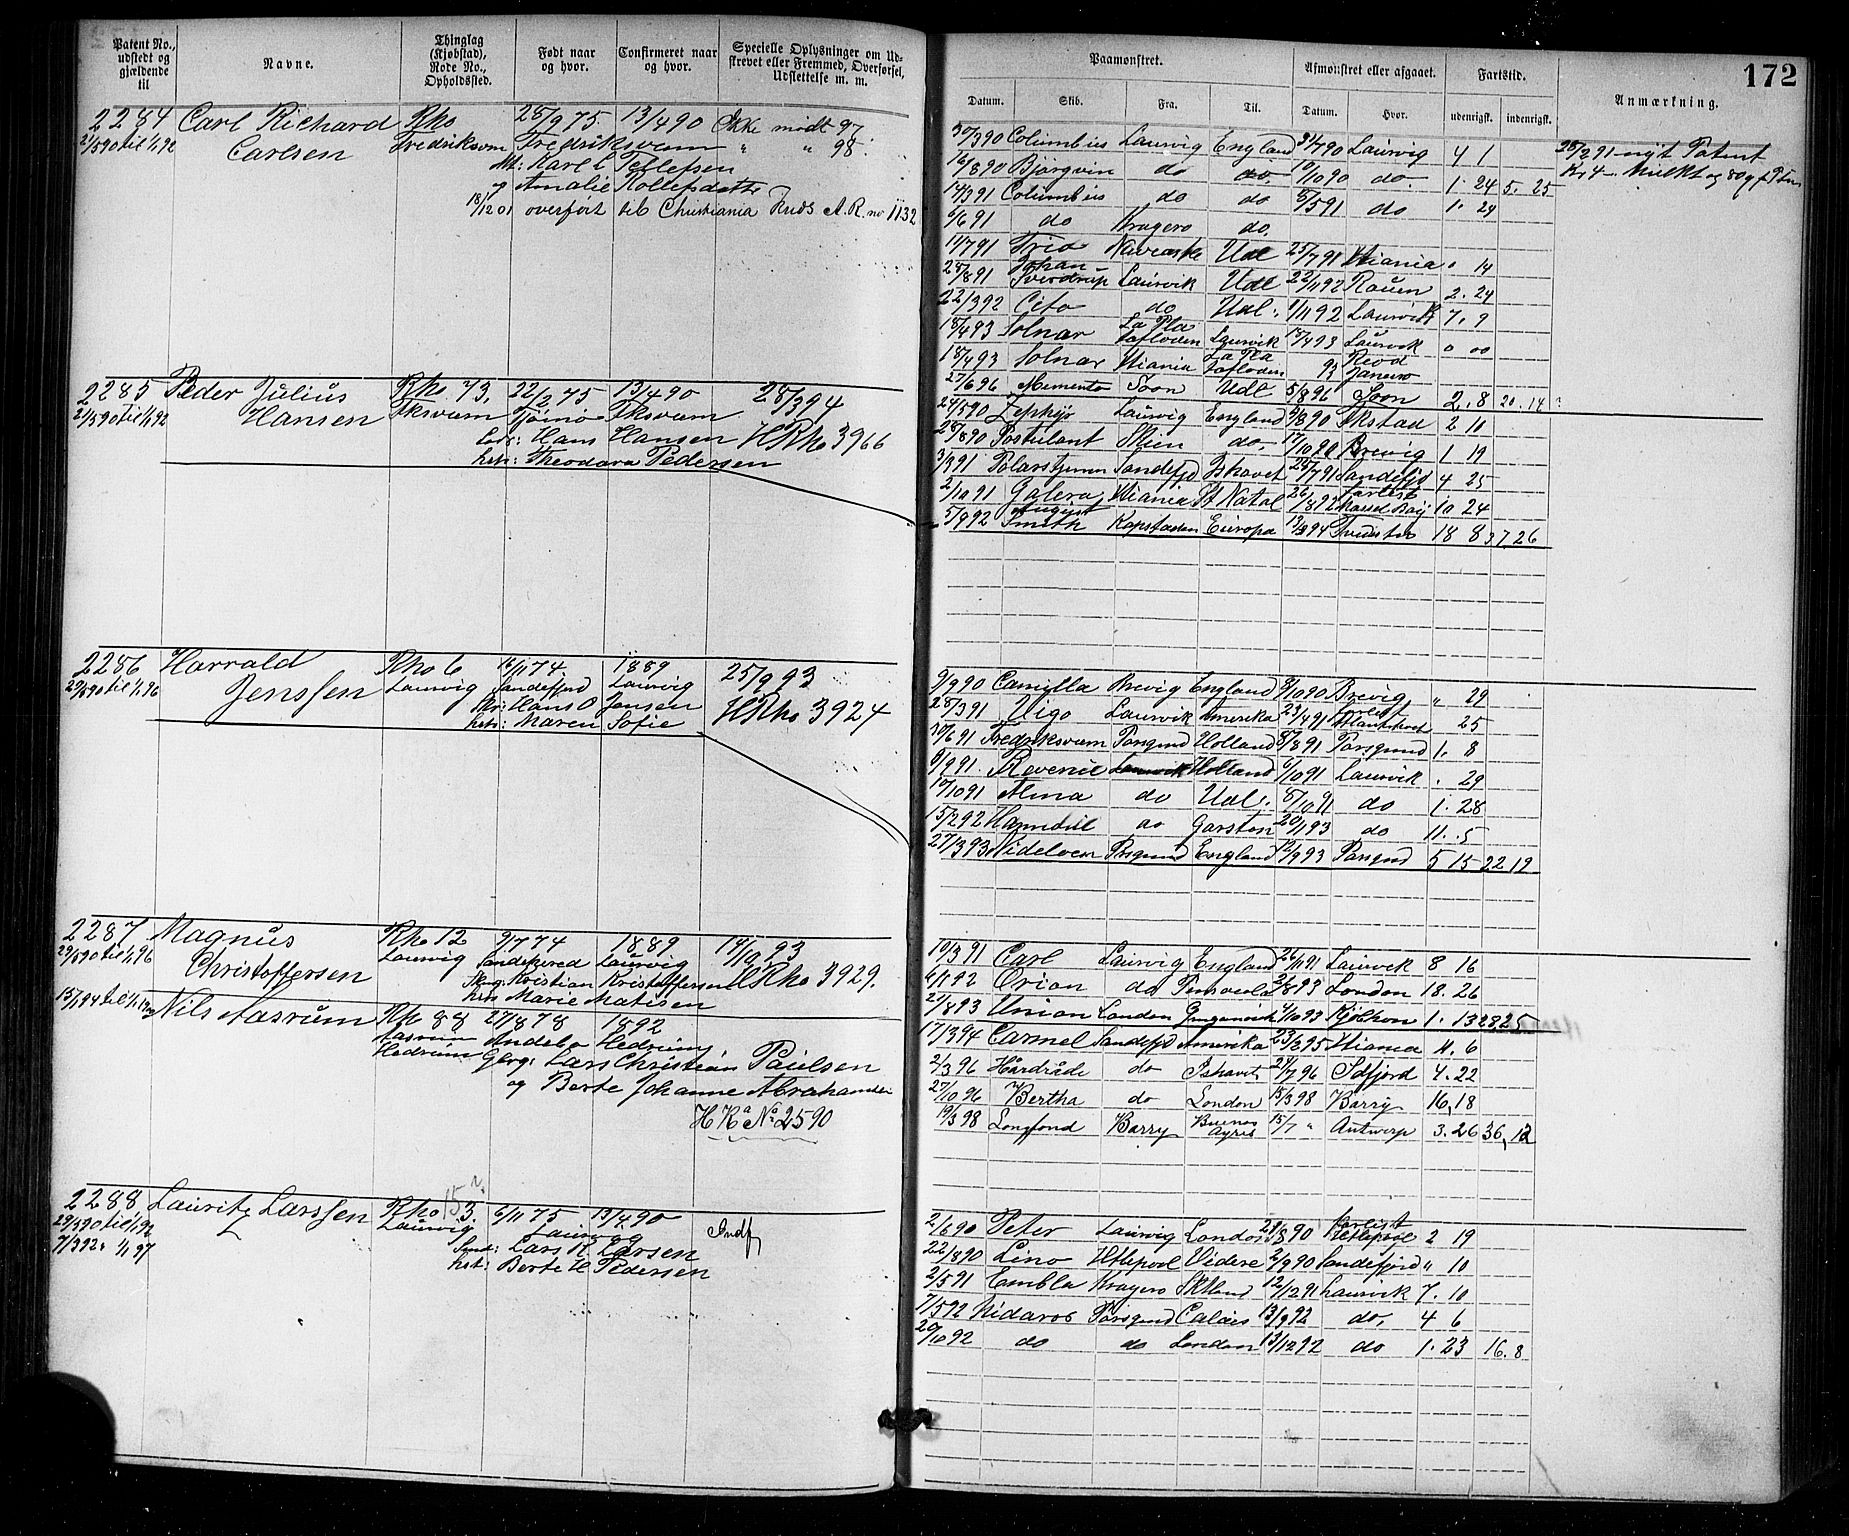 172
Patent No., udstedt og gjældende til
Navne.
Thinglag (Kjøbstad), Rode No., Opholdssted.
Født naar og hvor.
Confirmeret naar og hvor.
Specielle Oplysninger om Udskrevet eller Fremmed, Overførsel, Udslettelse m. m.
2284 Carl Richard Rko 13/490 Ikke mødt 97
21/590 til 1/1 92 Carlsen Fredriksværn Fredriksværn " " 98
Karl C Tellefsen
og Amalie
18/12 01 overført til Christiania Kreds A.R. no 1132
2285 Peder Julius Rko 73. 22/2 75 13/490 28/3 94
21/590 til 1/1 92 Hansen Fksværn Tjömö Fksværn
Hans Hansen HRko 3966
hst: Theodora Pedersen
2286 Harrald Rko 6 16/11 74 1889 25/9 93
29/590 til 1/1 96 Jenssen Laurvig Sandefjord Laurvig
Hans O Jensen HRko 3924
hst: Maren Sofie
2287 Magnus Rko 12 9/7 74 1889 14/10 93
29/590 til 1/1 96 Christoffersen Laurvig Laurvig
Kristian Kristoffersen HRko 3929.
hst Marie Matisen
Nils Aasrum Rko 88 27/8 78 1892
Aasrum Andebo Hedrum
Hedrum Lars Christian Paulsen
og Berte Johanne
H Ra No 2590
2288 Lauritz Larssen Rko 153. 6/11 75 13/4 90 Indf
29/590 til 1/1 92 Laurvig Laurvig
7/3 92 1/1 97 Lars K Larsen
hst: Berte H Pedersen
Paamønstret.
Afmønstret eller afgaaet.
Fartstid.
Anmærkning.
Datum. Skib. Fra. Til. Datum. Hvor. udenrigsk. indenrigsk.
30/3 90 Columbus Laurvig England Laurvig 4 1 nyt Patent
16/8 90 Björgvin do do. 10/10 90 do. 1. 24 5. 25 Kr 4 Mulkt og
14/3 91 Columbus do do 8/5 91 do 1. 24
6/6 91 do Kragerø do.
11/7 91 Frid Udl 25/7 91 Kiania " 14
25/8 91 Johan Sverdrup Laurvik Udl 22/1 92 Rouen 2. 24
22/3 92 Cito do Udl. 1/11 92 Laurvik 7. 9
18/4 93 Solnar La Pla Laurvik 18/4 93 Laurvik 0 00
18/4 93 Solnar Kiania La Pla 93 Janeiro
27/6 96 Memento Soon Udl 5/8 96 Soon 2. 8 20. 14
24/5 90 Zephyr Laurvig England 9/8 90 Fkstad 2 10
28/8 90 Postulant Skien do. 17/10 90 Brevig 1 19
3/3 91 Polarstjernen Sandefjd Ishavet 28/7 91 Sandefjd 4 25
2/10 91 Galera Kiania Pt Natal 26/8 92 Forlist Mossel Bay 10 24
5/9 92 August Smith Kapstaden Europa 18 8 37. 26
9/9 90 Camilla Brevig England 8/10 90 Brevig " 29
28/3 91 Vigo Laurvik Amerika 23/4 91 forlist Atlanterhavet 25
30/6 91 Fredriksværn Porsgrund Holland 8/8 91 Porsgrund 1. 8
9/9 91 Revenue Laurvik Holland 6/10 91 Laurvik . 29
10/10 91 Alma do Udl. do 1. 28
15/2 92 do Garston 20/1 93 do 11. 5
27/3 93 Nidelven Porsgrund England 12/9 93 Porsgrund 5 15 22 19
10/3 91 Carl Laurvig England 26/11 91 Laurvik 8 16
6/1 92 Orion do London 18. 26
27/8 93 Union London 4/10 93 Kjöbhvn 1. 13 28 25
17/3 94 Carmel Sandefjd Amerika 23/2 95 Kiania 11. 6
2/3 96 Hårdråde do Ishavet 24/7 96 Sdfjord 4. 22
27/10 96 Bertha do London 15/3 98 Barry 16, 18
19/3 98 Longford Barry Buenos Ayres 15/7 " Antwerp 3. 26 36, 12
2/6 90 Peter Laurvig London Forlist 2 19
22/8 90 Lino Htlepool Videre 2/9 90 Sandefjord " 10
2/5 91 Embla Kragerø Sktland 12/12 91 Laurvik 7. 10
7/5 92 Nidaros Porsgrund Calais 13/9 92 do. 4 6
20/10 92 do do London 13/12 92 do 1. 23 16. 8